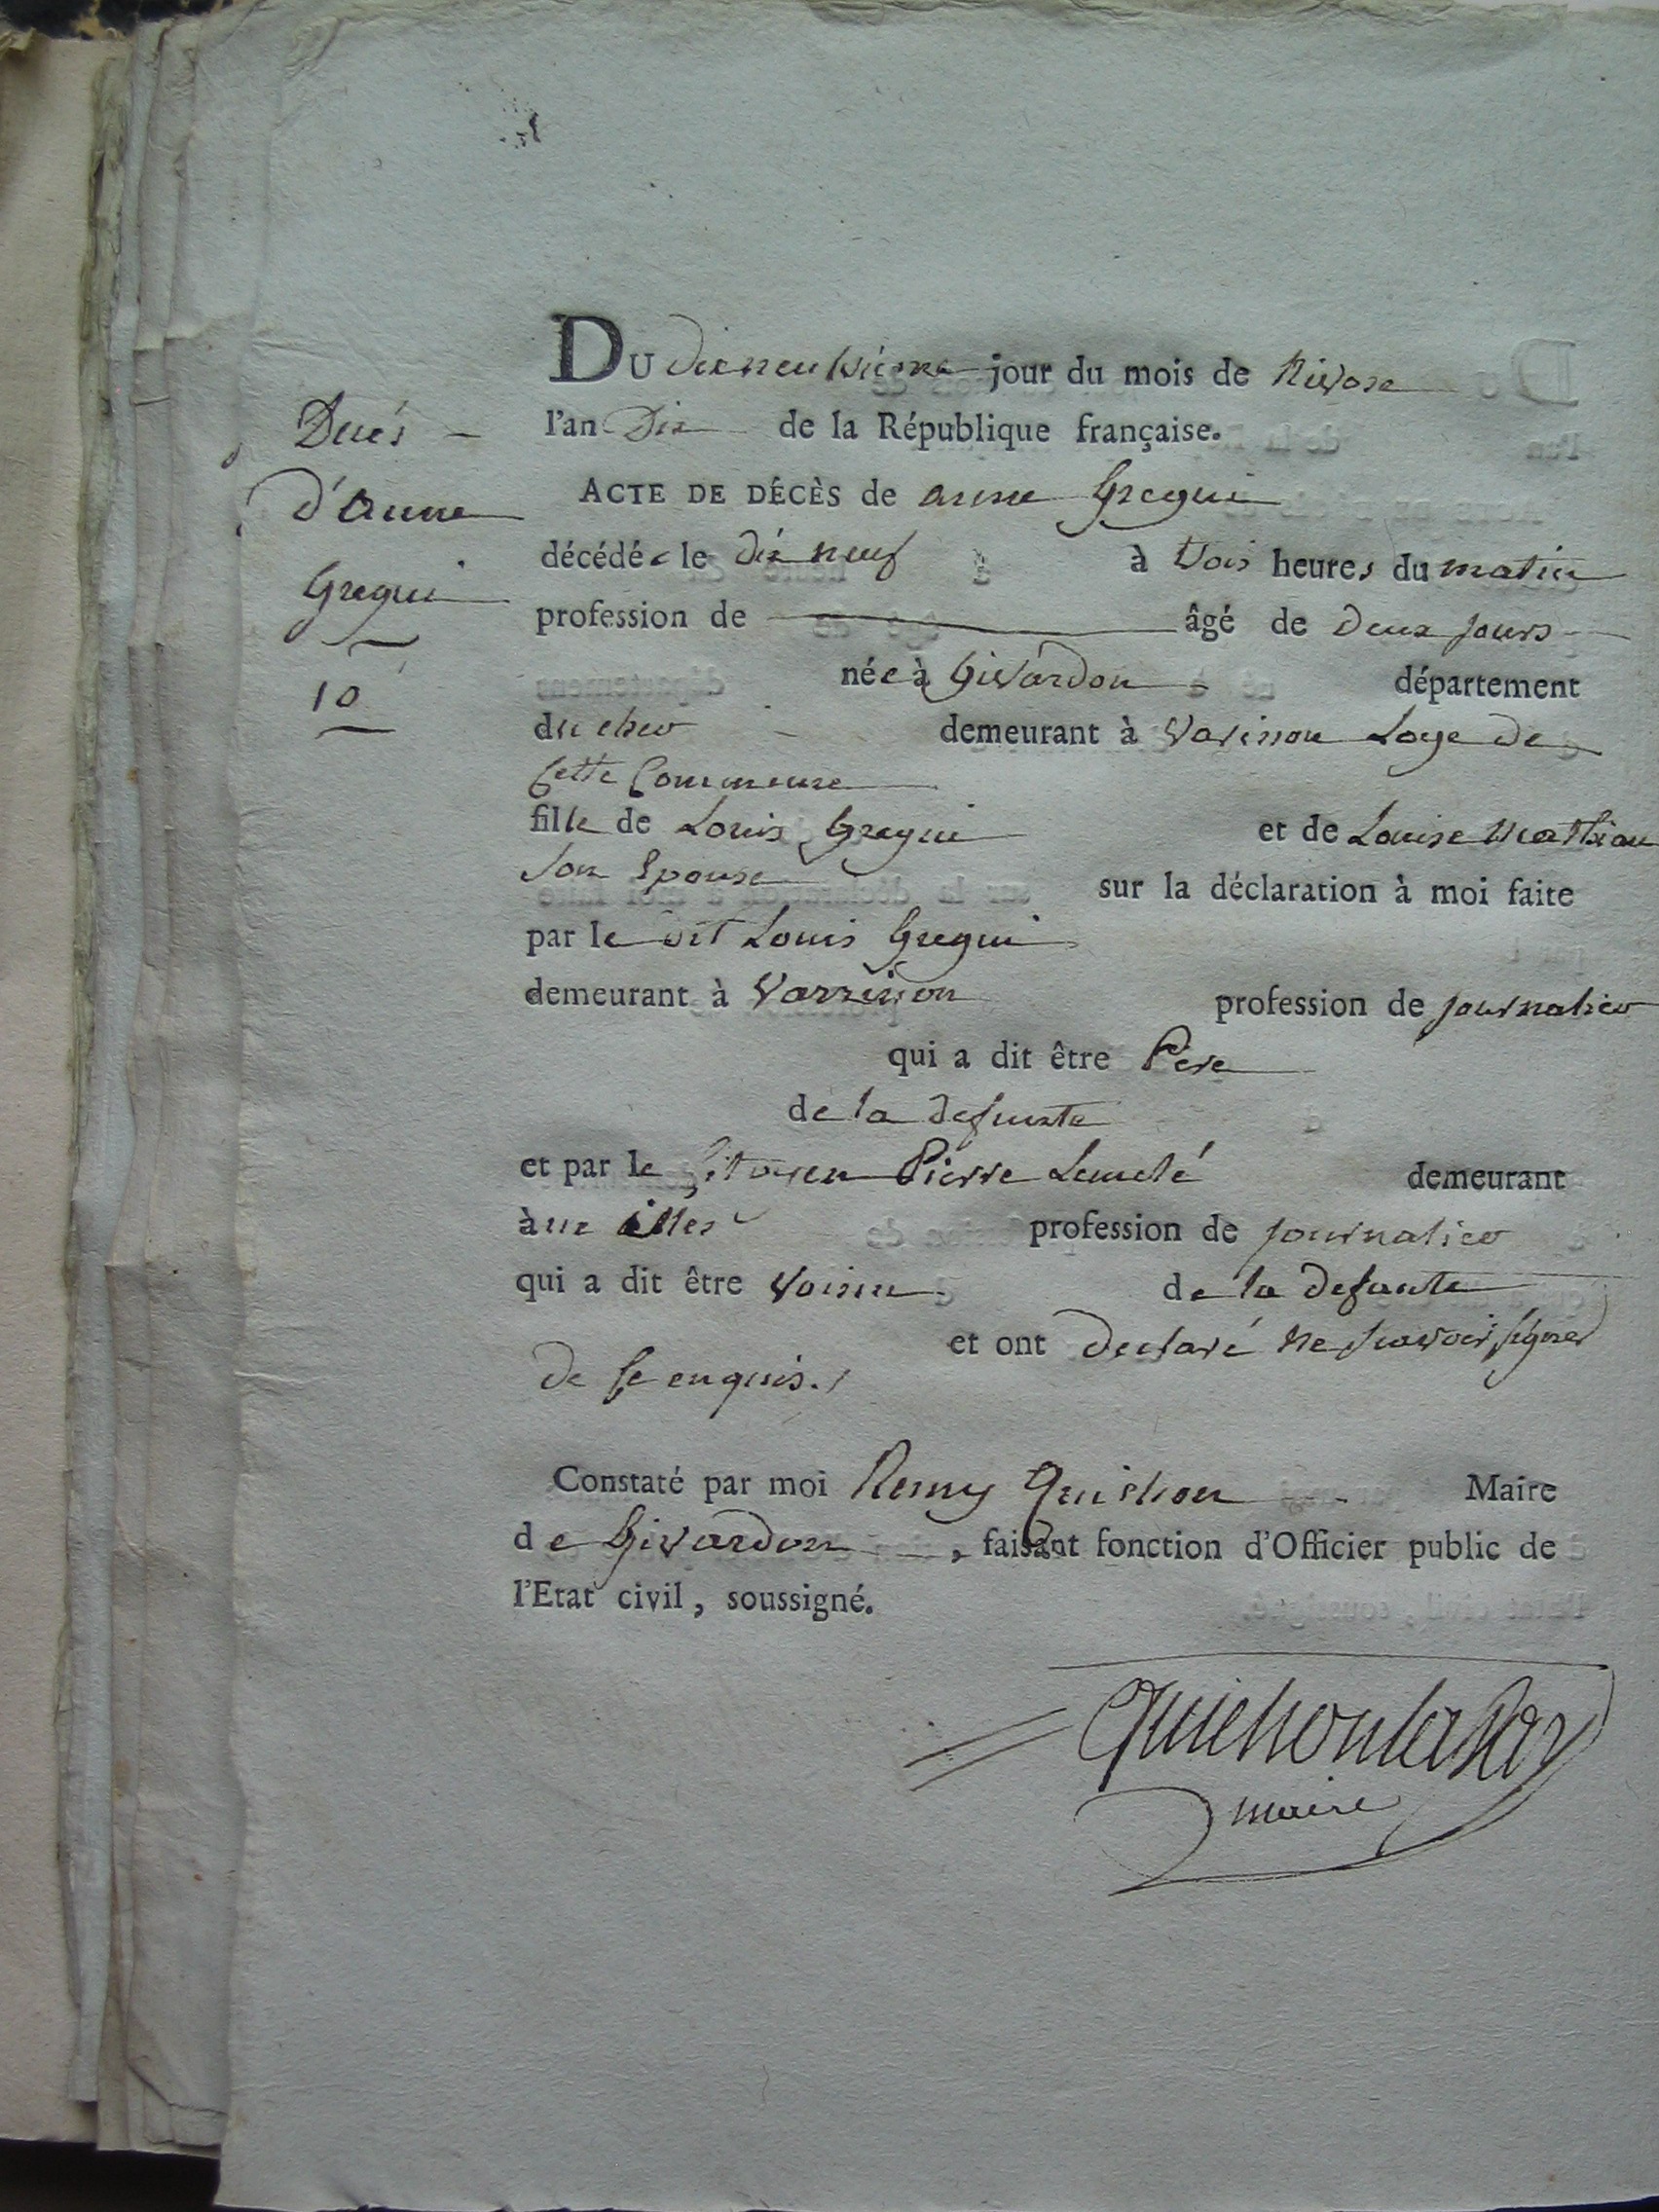 Du dixneuvième jour du mois de Nivose
l'an Dix de la République française.
Decés
d'anne
Gregui
10
ACTE DE DÉCÈS de anne Gregui
décédée le dix neuf à trois heures du matin
profession de âgé de deux jours
née à Givardon département
du cher demeurant à Varinon Loge de
Cette Commune
fille de Louis Gregui et de Louise Mathiau
son Epouse sur la déclaration à moi faite
par le dit Louis Gregui
demeurant à profession de journalier
qui a dit être Pere
de la defunte
et par le Citoyen Pierre demeurant
àux profession de journalier
qui a dit être Voisin de la defunte
et ont declaré ne savoir signer
de ce enquis./
Constaté par moi Remy Quichon Maire
de Givardon, faisant fonction d'Officier public de
l'Etat civil, soussigné.
maire